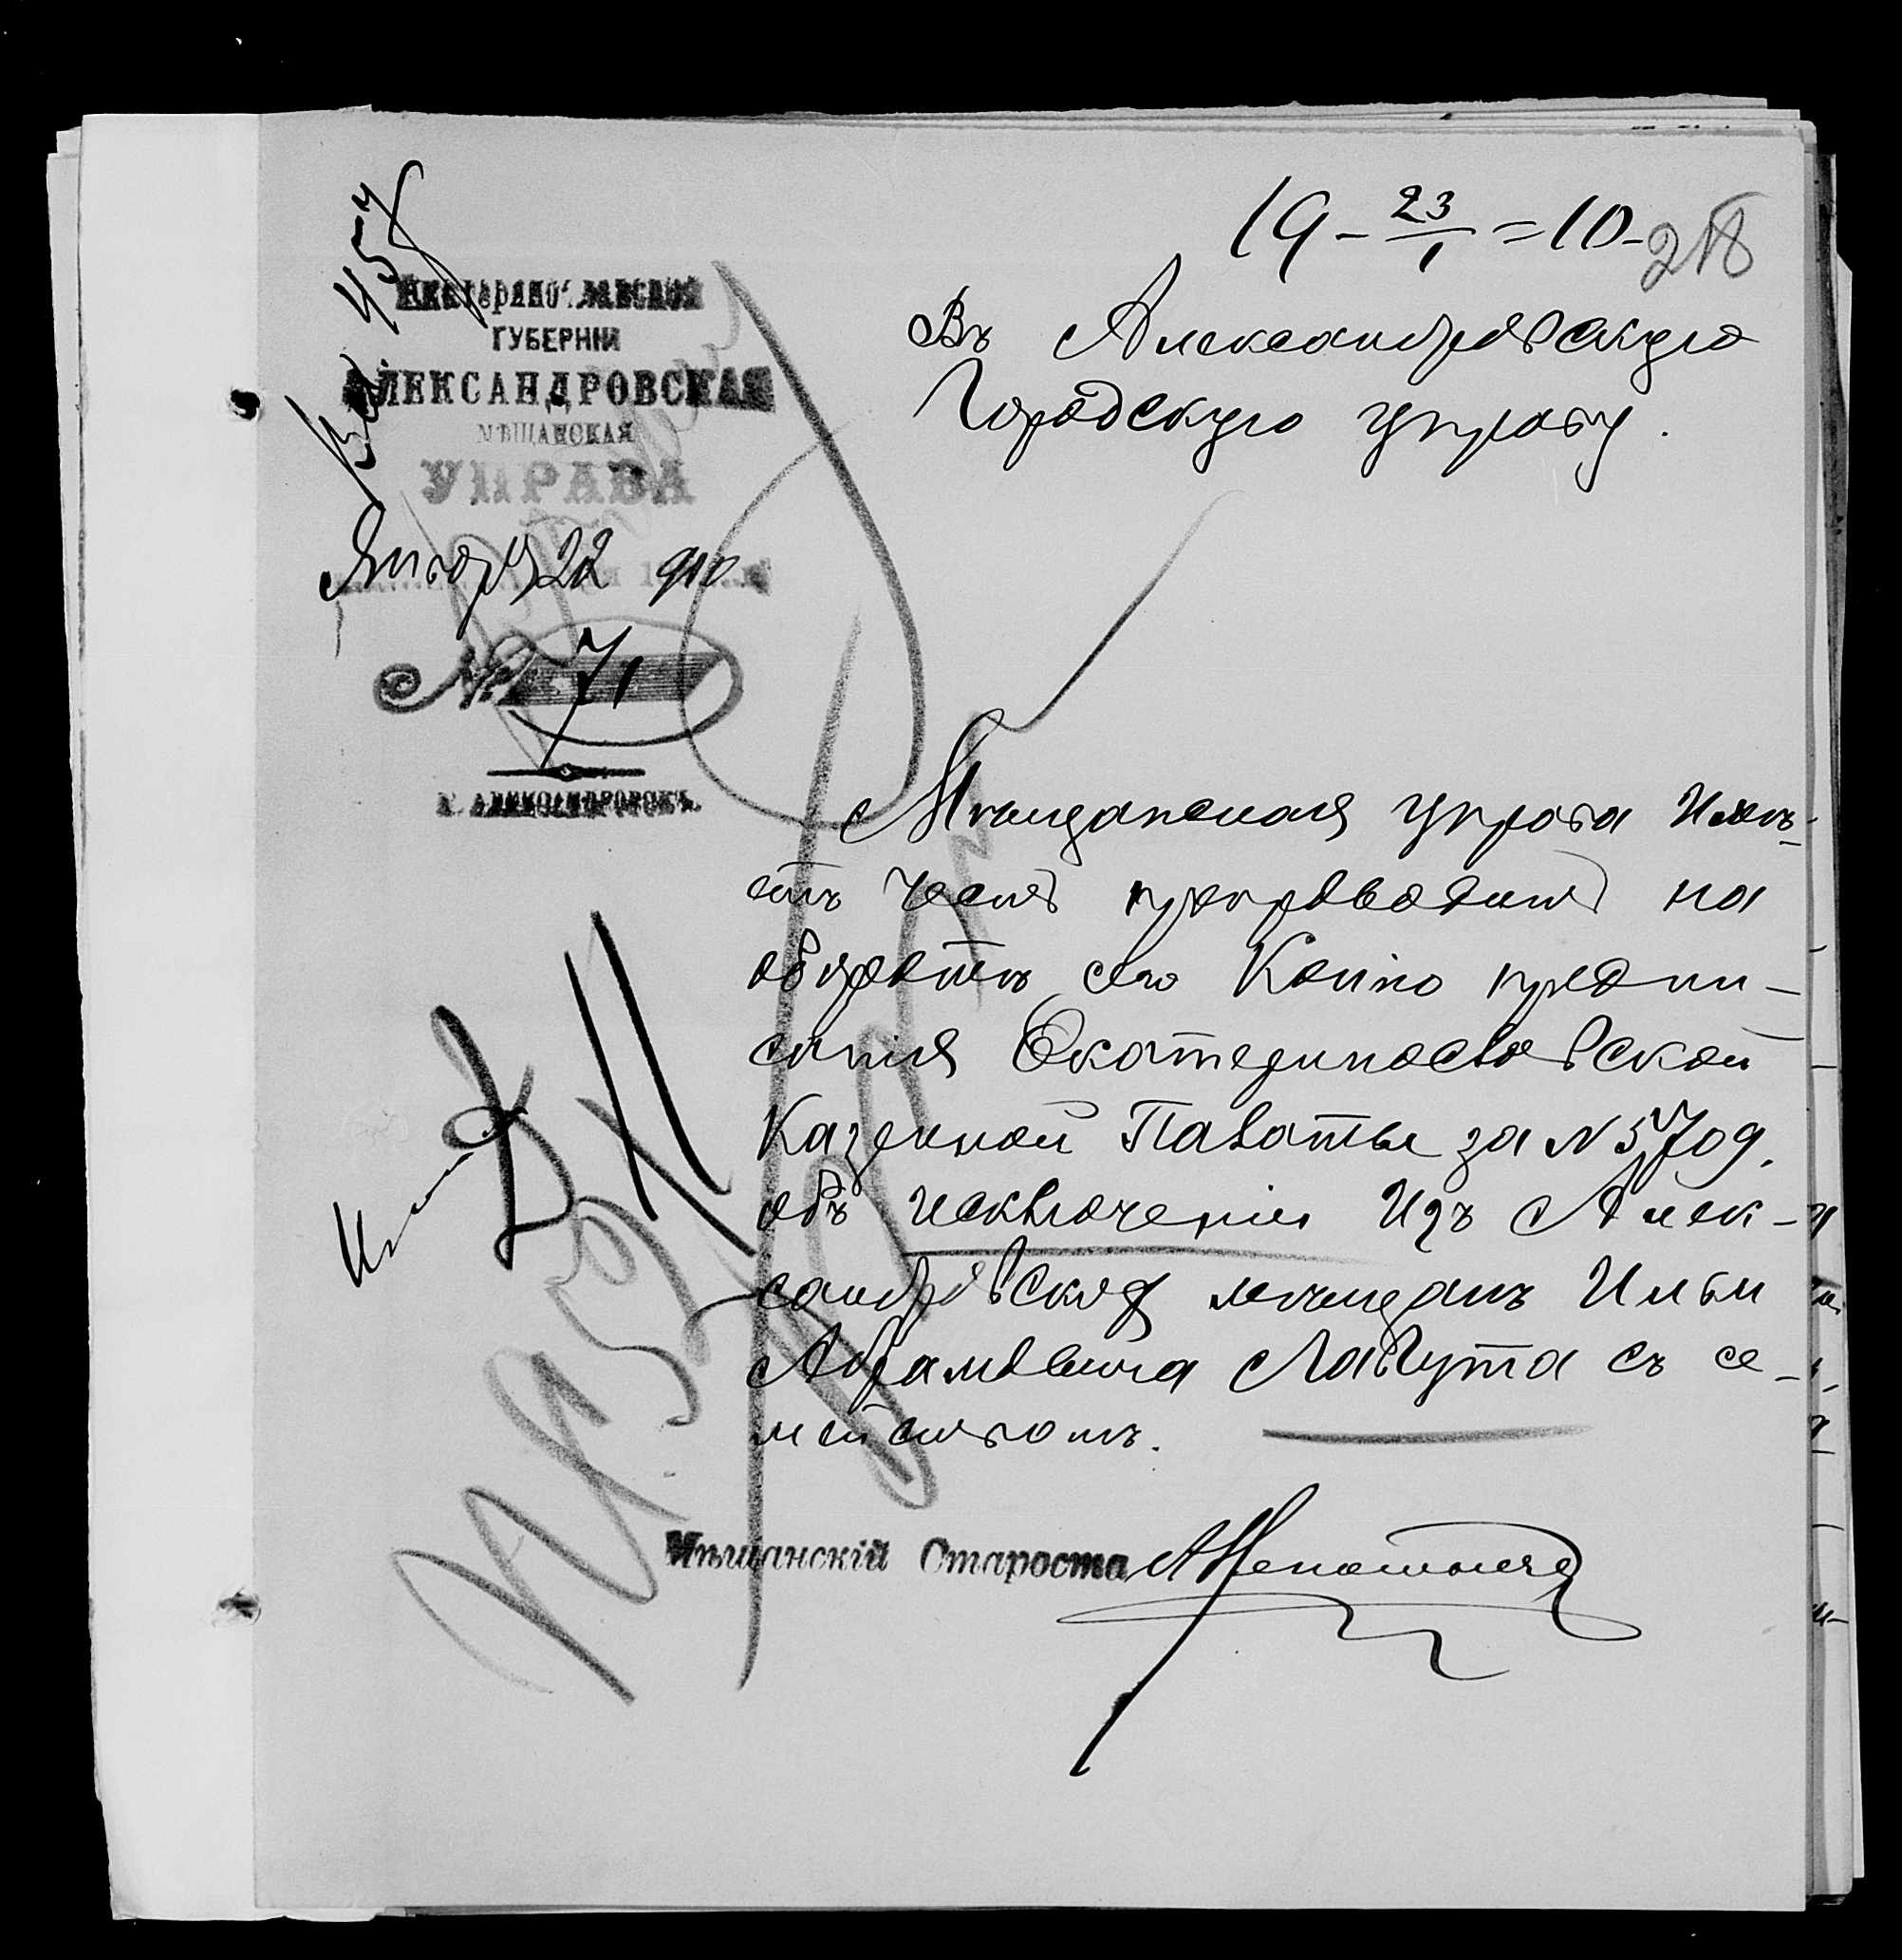 19 - 23/1 = 10
Вх 457
Екатеринославской
ГУБЕРНІИ
АЛЕКСАНДРОВСКАЯ
МѢЩАНСКАЯ
УПРАВА
Января 22 910
№ 71
Г. АЛЕКСАНДРОВСКЪ.
Въ Александровскую
Городскую управу.
Мѣщанская управа имѣ-
етъ честь препроводить на
оборотѣ сего Копію предпи-
санія Екатеринославской
Казенной Палаты за № 5709.
объ исключеніи изъ Алек-
сандровскихъ мѣщанъ Ильи
Абрамовича Лабута съ се-
мействомъ.
Мѣщанскій Староста